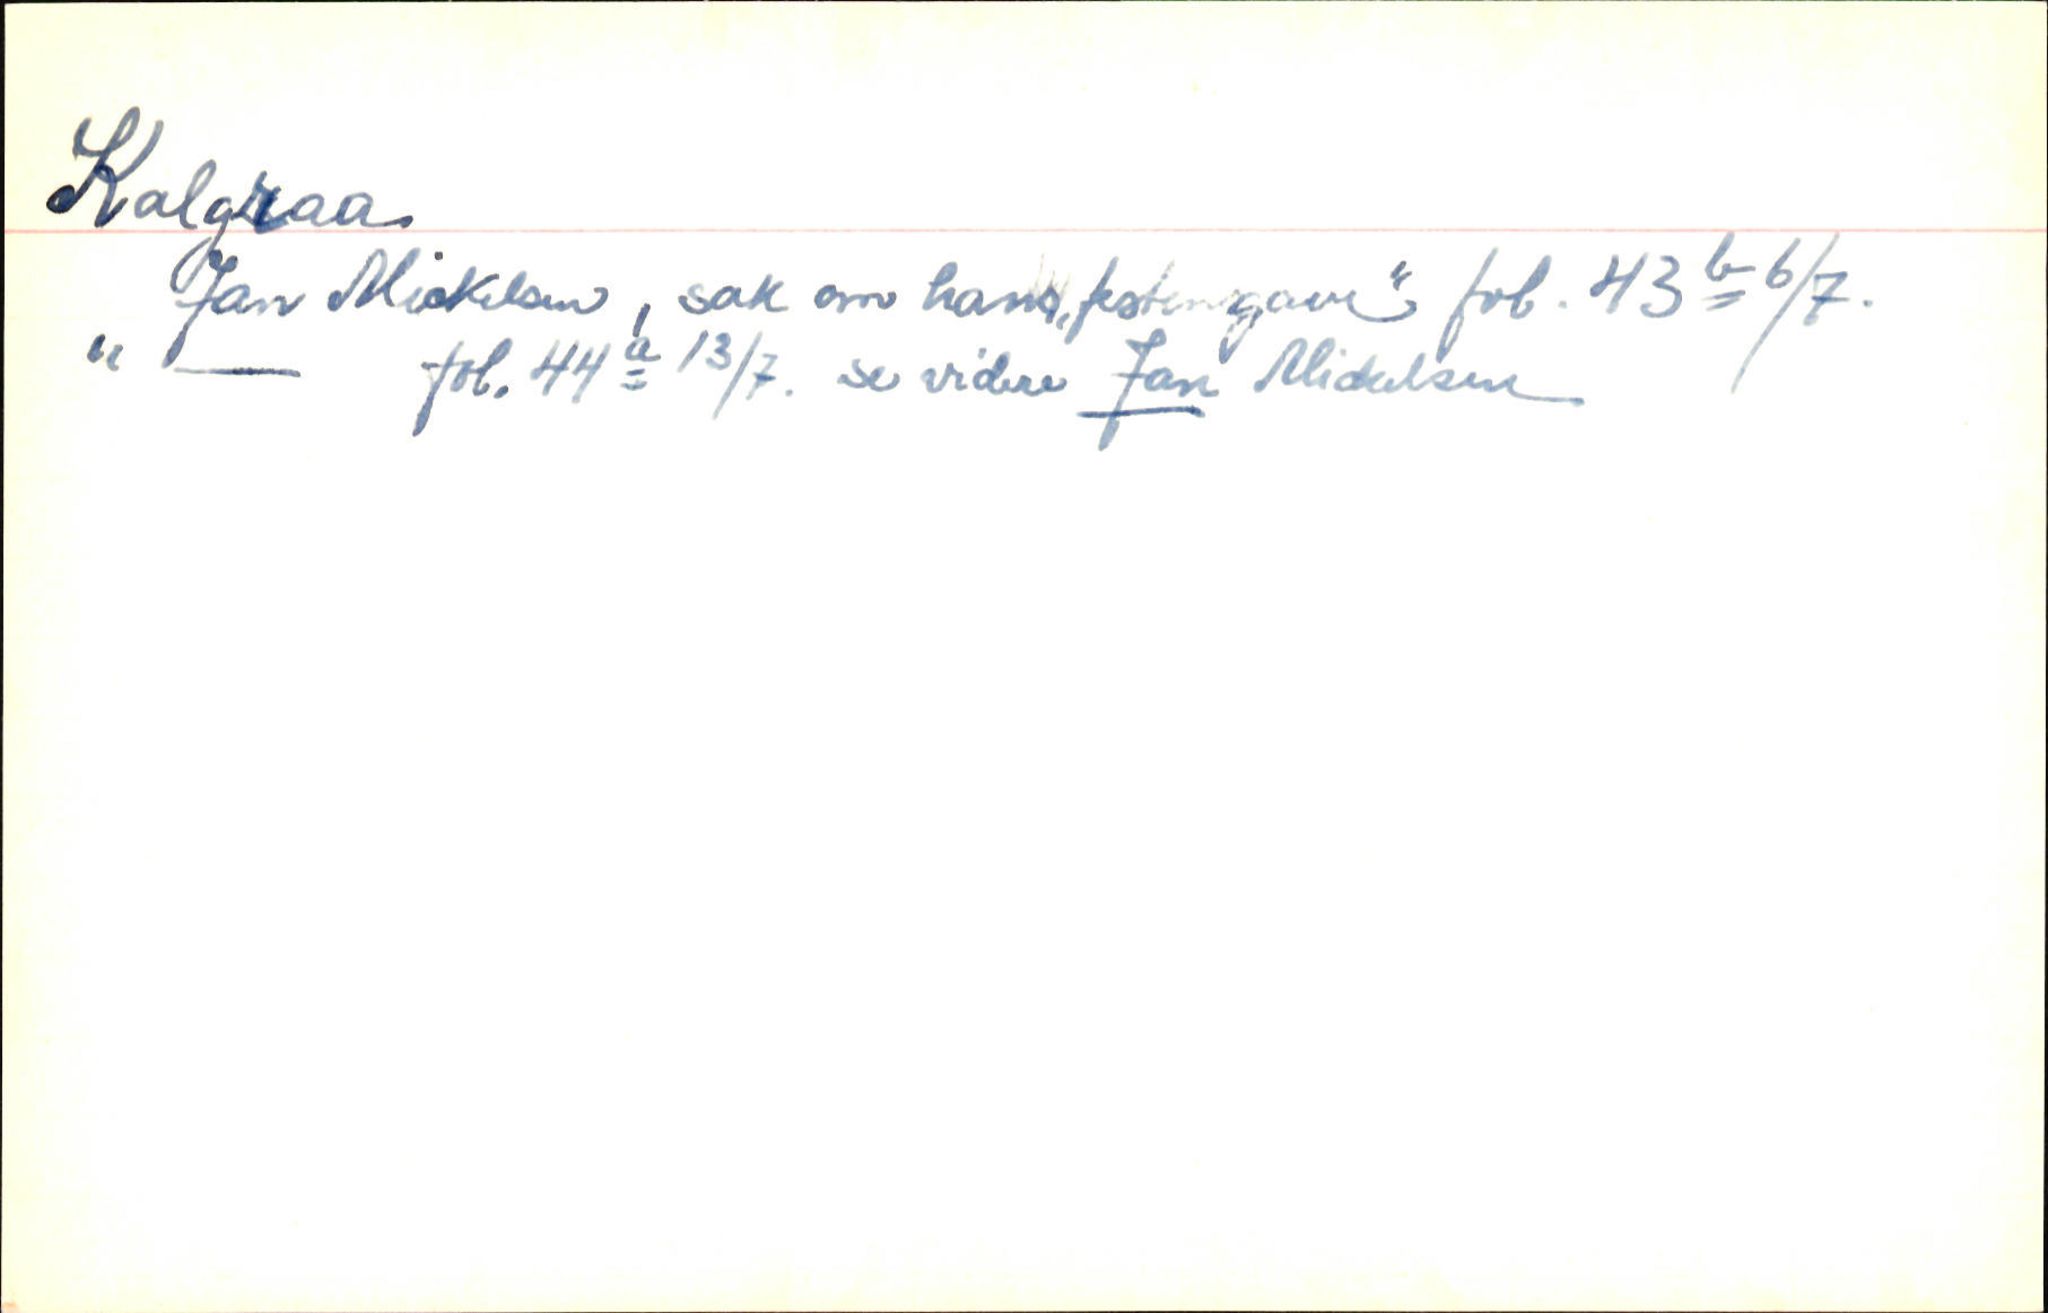 Kalgraa
Jan Mickelsen, sak om hans „festensgave" fol. 43 b 6/7.
" — fol. 44 a 13/7. se videre Jan Mickelsen